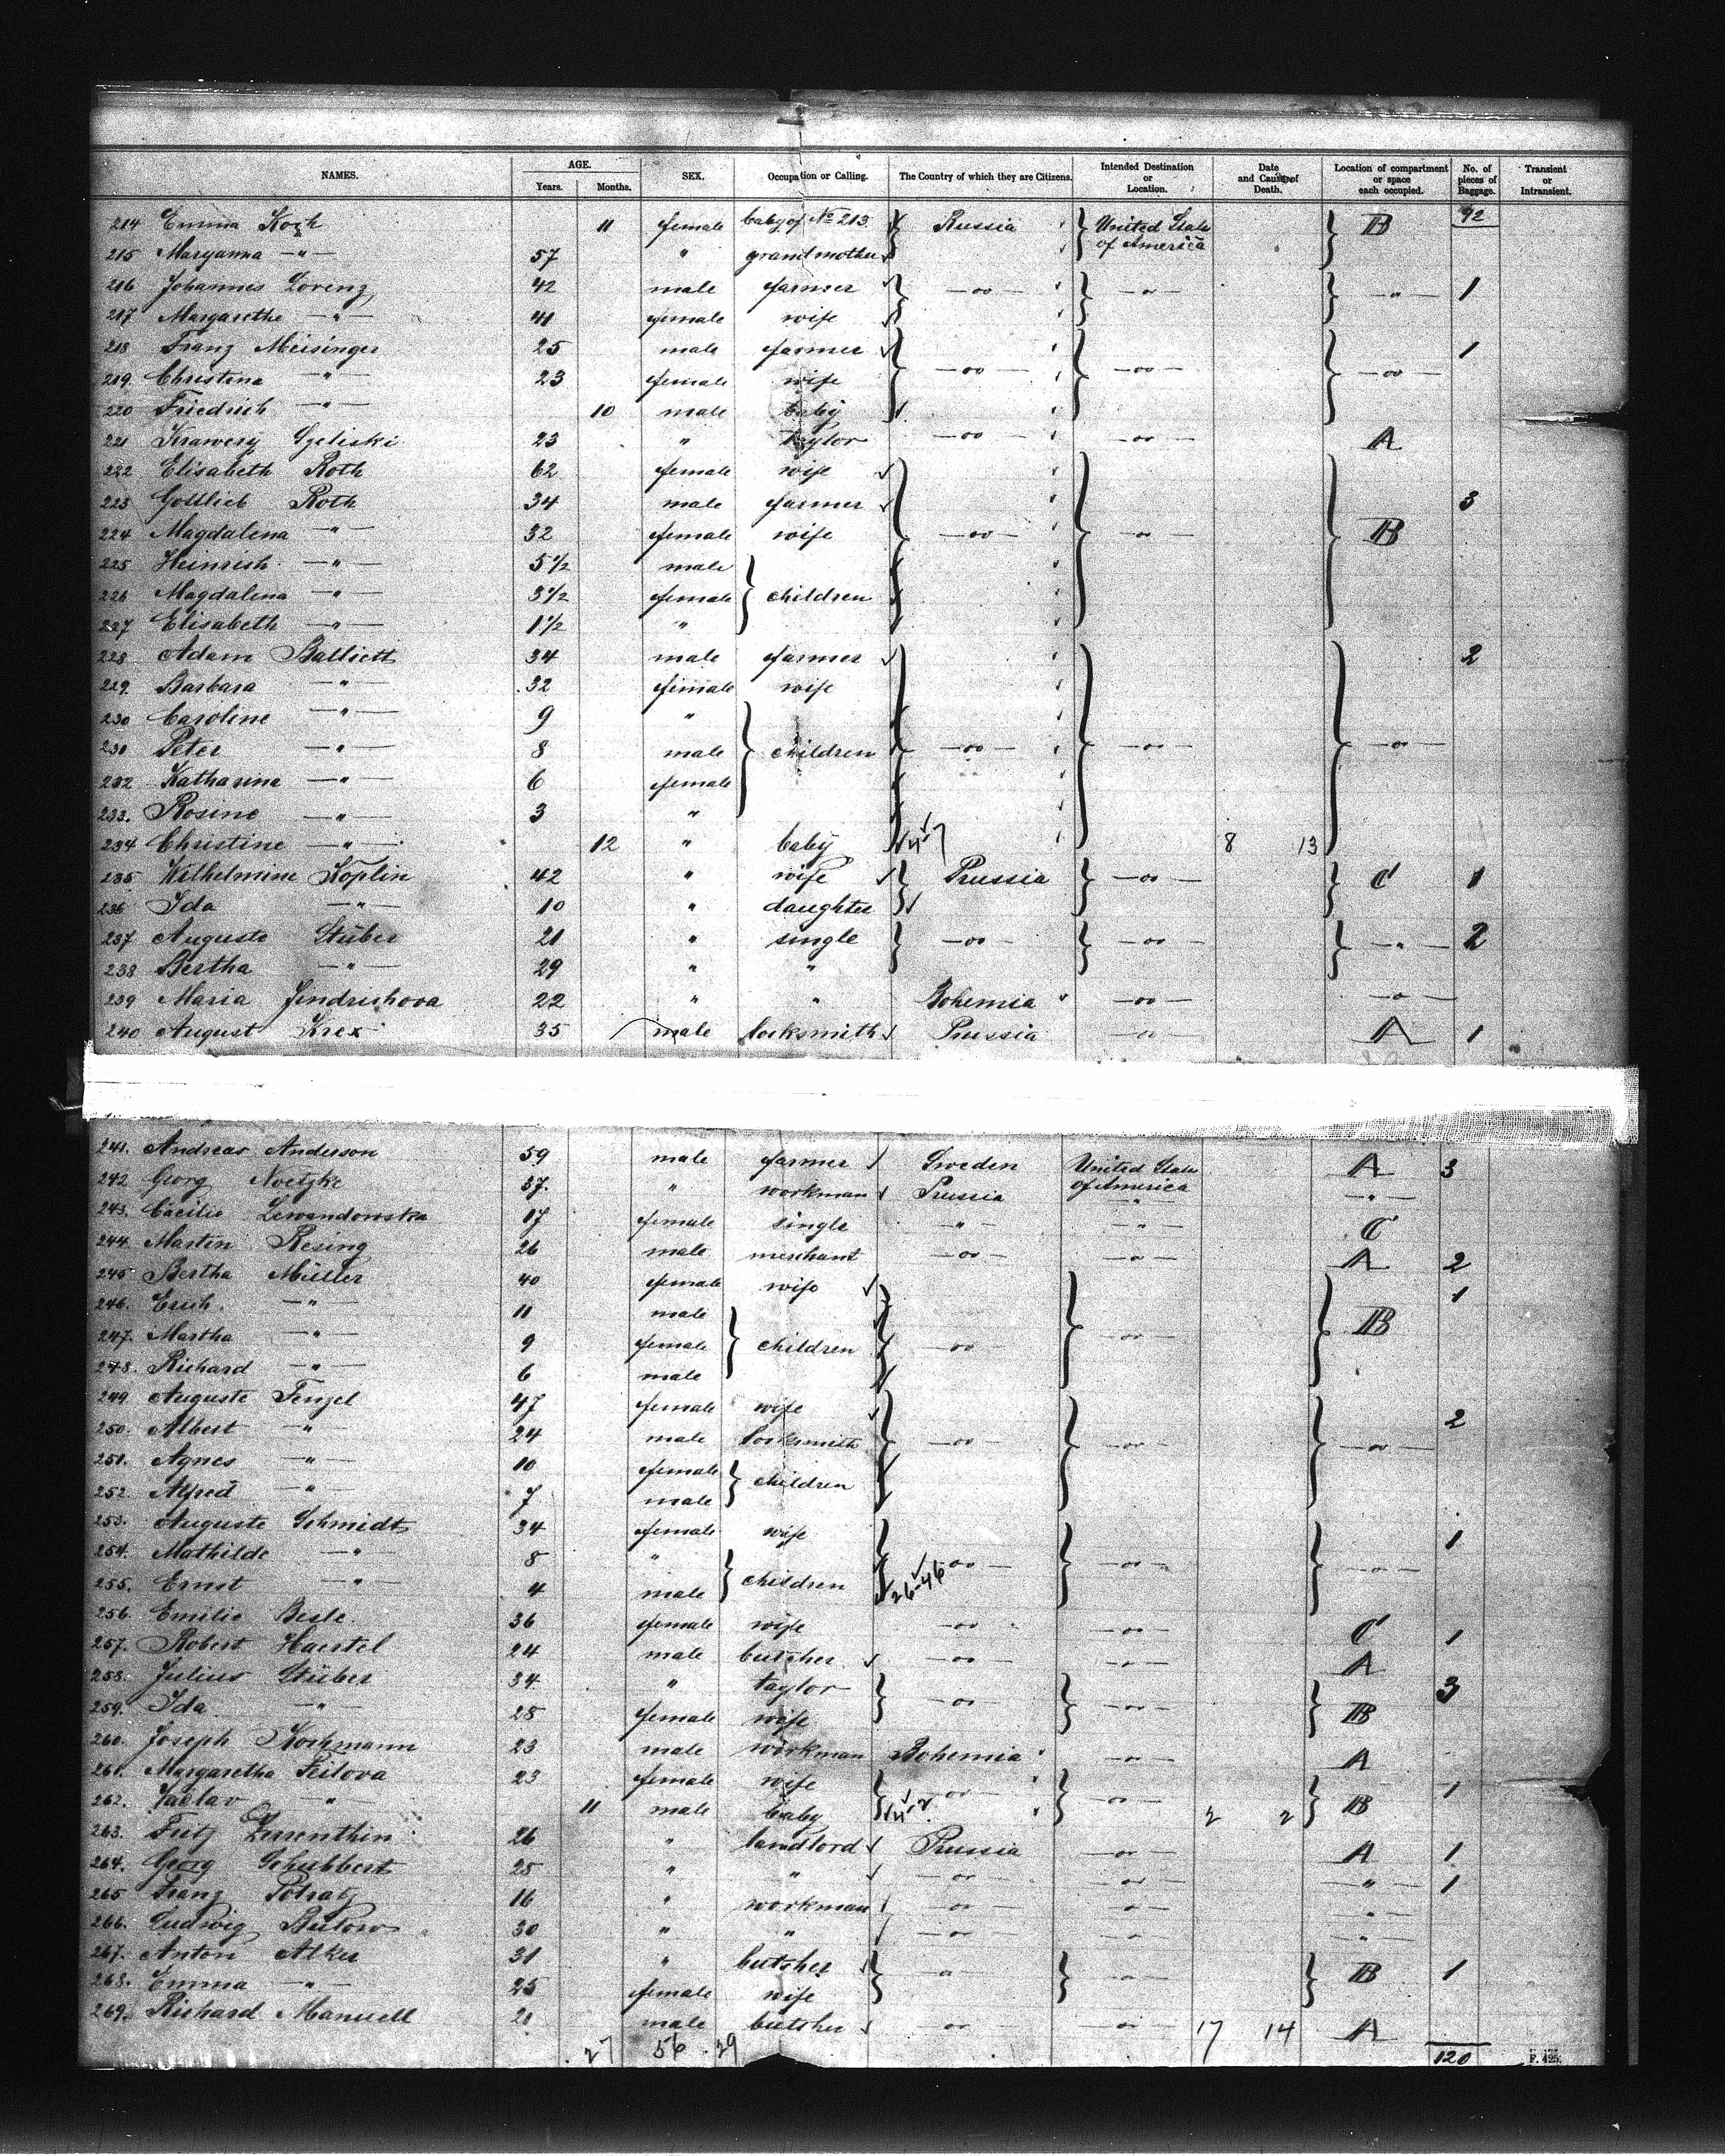 NAMES. AGE. Years. Months. SEX. Occupation or Calling. The Country of which they are Citizens. Intended Destination or Location. Date and Cause of Death. Location of compartment or space each occupied. No. of pieces of Baggage. Transient or Intransient.
214 Emma Koch 11 female baby of No 213 Russia United State of America B 92
215 Maryanna -"- 57 " grandmother
216 Johannes Lorenz 42 male farmer -oo- -o- -"- 1
217 Margarethe -"- 41 female wife
218 Franz Meisinger 25 male farmer 1
219. Christina -"- 23 female wife -oo- -oo- -oo-
220 Friedrich -"- 10 male baby
221 23 " taylor -oo- -oo- A
222 Elisabeth Roth 62 female wife
223 Gottlieb Roth 34 male farmer 3
224 Magdalena -"- 32 female wife -oo- -o- B
225 Heinrich -"- 5 1/2 male
226 Magdalena -"- 3 1/2 female children
227 Elisabeth -"- 1 1/2 "
228 Adam Balliett 34 male farmer 2
229. Barbara -"- 32 female wife
230 Caroline -"- 9 "
231 Peter -"- 8 male children -oo- -oo- -o-
232 Katharina -"- 6 female
233. Rosine -"- 3 "
234 Christine -"- 12 " baby 8 13
235 Wilhelmine Koplin 42 " wife Prussia -oo- C 1
236 Ida -"- 10 " daughter
237 Auguste Stüber 21 " single -oo- -oo- -"- 2
238 Bertha -"- 29 " "
239 Maria Jindrichova 22 " " Bohemia " -oo- -o-
240 August Krex 35 male locksmith Prussia -o- A 1
241. Andreas Anderson 59 male farmer Sweden United State of America A 3
242 Georg Noetzke 37. " workman Prussia " -"-
243. Cäcilie Lewandowska 17 female single -"- -"- C
244. Martin Resing 26 male merchant -oo- -o- A 2
245 Bertha Müller 40 female wife 1
246. Erich -"- 11 male B
247. Martha -"- 9 female children -oo- -oo-
248. Richard -"- 6 male
249. Auguste Tenzel 47 female wife 2
250. Albert -"- 24 male locksmith -oo- -oo- -oo-
251. Agnes -"- 10 female children
252. Alfred -"- 7 male
253. Auguste Schmidt 34 female wife 1
254. Mathilde -"- 8 " children -oo- -oo- -o-
255. Ernst -"- 4 male 26-46
256. Emilie Beste 36 female wife -oo- -oo- C 1
257. Robert Haertel 24 male butcher -oo- -o- A
258. Julius Stüber 34 " taylor 3
259. Ida -"- 28 female wife -oo- -oo- B
260. Joseph Kochmann 23 male workman Bohemia -o- A
261. Margaretha Feilova 23 female wife -oo- -o- 1
262. Vaclav -"- 11 male baby 2 2 B
263. Fritz Zerrenthin 26 " landlord Prussia -o- A 1
264. Georg Schubbert 25 " " -oo- -oo- -"- 1
265 Franz Potratz 16 " workman -oo- -o- -"-
266. Ludwig Bütow 30 " " -oo- -o- -"-
267. Anton Alker 31 " butcher -o- -o- B 1
268. Emma -"- 25 female wife
269. Richard Manuell 21 male butcher -oo- -o- 17 14 A
27 56 29 120